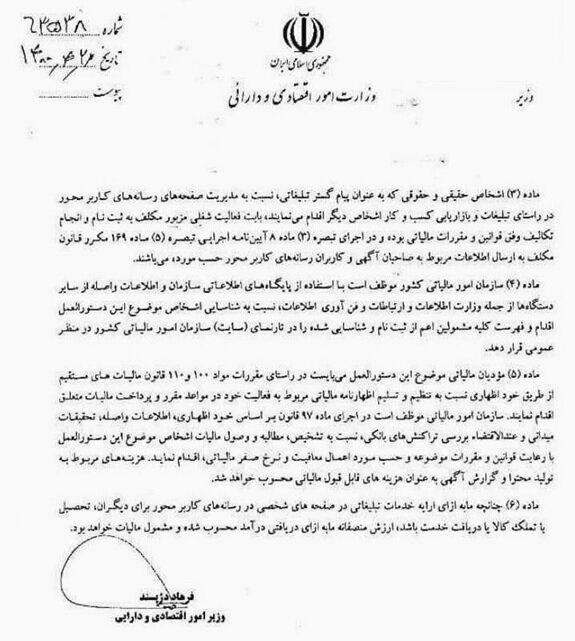 شماره ۶۳۵۳۸
تاریخ ۱۴۰۰٫۰۴٫۲۰
پیوست
جمهوری اسلامی ایران
وزارت امور اقتصادی و دارائی
وزیر
ماده (۳) اشخاص حقیقی و حقوقی که به عنوان پیام گستر تبلیغاتی، نسبت به مدیریت صفحه‌های رسانه‌های کاربر محور
در راستای تبلیغات و بازاریابی کسب و کار اشخاص دیگر اقدام می‌نمایند، بابت فعالیت شغلی مزبور مکلف به ثبت نام و انجام
تکالیف وفق قوانین و مقررات مالیاتی بوده و در اجرای تبصره (۳) ماده ۸ آیین‌نامه اجرایی تبصره (۵) ماده ۱۶۹ مکرر قانون
مکلف به ارسال اطلاعات مربوط به صاحبان آگهی و کاربران رسانه‌های کاربر محور حسب مورد، می‌باشند.
ماده (۴) سازمان امور مالیاتی کشور موظف است با استفاده از پایگاه‌های اطلاعاتی سازمان و اطلاعات واصله از سایر
دستگاه‌ها از جمله وزارت اطلاعات و ارتباطات و فن آوری اطلاعات، نسبت به شناسایی اشخاص موضوع این دستورالعمل
اقدام و فهرست کلیه مشمولین اعم از ثبت نام و شناسایی شده را در تارنمای (سایت) سازمان امور مالیاتی کشور در منظر
عمومی قرار دهد.
ماده (۵) مؤدیان مالیاتی موضوع این دستورالعمل می‌بایست در راستای مقررات مواد ۱۰۰ و ۱۱۰ قانون مالیات های مستقیم
از طریق خود اظهاری نسبت به تنظیم و تسلیم اظهارنامه مالیاتی مربوط به فعالیت خود در مواعد مقرر و پرداخت مالیات متعلق
اقدام نمایند. سازمان امور مالیاتی موظف است در اجرای ماده ۹۷ قانون بر اساس خود اظهاری، اطلاعات واصله، تحقیقات
میدانی و عندالاقتضاء بررسی تراکنش‌های بانکی، نسبت به تشخیص، مطالبه و وصول مالیات اشخاص موضوع این دستورالعمل
با رعایت قوانین و مقررات موضوعه و حسب مورد اعمال معافیت و نرخ صفر مالیاتی، اقدام نماید. هزینه‌های مربوط به
تولید محتوا و گزارش آگهی به عنوان هزینه های قابل قبول مالیاتی محسوب خواهد شد.
ماده (۶) چنانچه مابه ازای ارایه خدمات تبلیغاتی در صفحه های شخصی در رسانه‌های کاربر محور برای دیگران، تحصیل
یا تملک کالا یا دریافت خدمت باشد، ارزش منصفانه مابه ازای دریافتی درآمد محسوب شده و مشمول مالیات خواهد بود.
فرهاد دژپسند
وزیر امور اقتصادی و دارایی